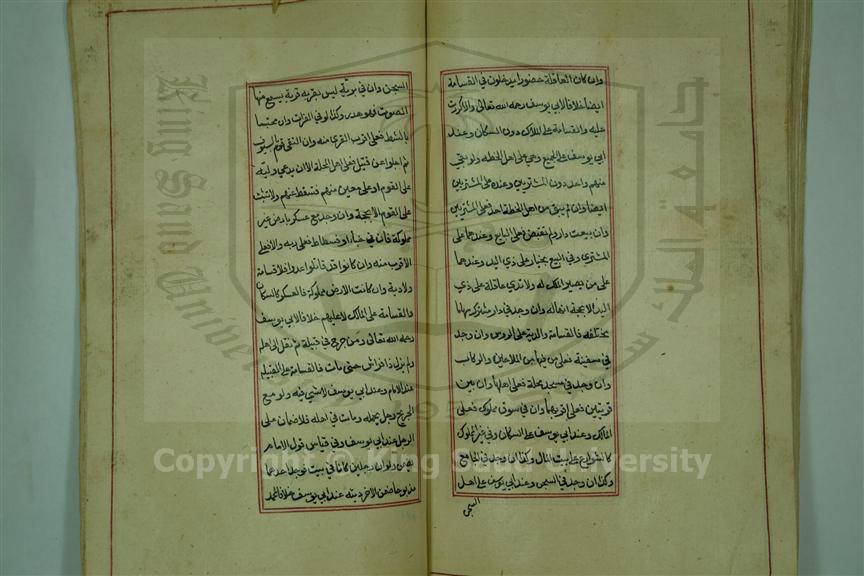 وان كان العاقلة حضورا يدخلون في القسامة
ايضا خلافا لابي يوسف رحمه الله تعالى ولا تكررت
عليه والقسامة على الملاك دون السكان وعند
ابي يوسف على الجميع وهي على اهل الخطة ولو بقي
منهم واحد دون المشترين وعنده على المشترين
ايضا وان لم يبق من اهل الخطة احد فعلى المشترين
وان بيعت دار ولم تقبض فعلى البايع وعندهما على
المشتري وفي البيع بخيار على ذي اليد وعندهما
على من يصير الملك له ولا تدي عاقلة على ذي
اليد الا بحجة انها له وان وجد في دار مشتركة سهاما
مختلفه فالقسامة والدية على الروس وان وجد
في سفينة فعلى من فيها من الملاحين والركاب
وان وجد في مسجد محلة فعلى اهلها وان بين
قريتين فعلى اقربهما وان في سوق مملوك فعلى
المالك وعند ابي يوسف على السكان وفي غير المملوك
كالشوارع على بيت المال وكذا ان وجد في الجامع
وكذا ان وجد في السجن وعند ابي يوسف على اهل
السجن
السجن وان في برية ليس بقربه قرية يسمع منها
الصوت فهو هدر وكذا لو في الفرات وان محتبسا
بالشط فعلى اقرب القرى منه وان التقى قوم بالسيوف
ثم اجلوا عن قتيل فعلى اهل المحلة الا ان يدعي وليه
على القوم او على معين منهم فتسقط عنهم ولا تثبت
على القوم الا بحجة وان وجد مع عسكر بارض غير
مملوكة فان في خباء او فسطاط فعلى ربه والا فعلى
الاقرب منه وان كانوا قد قاتلوا عدوا فلا قسامة
ولا دية وان كانت الارض مملوكة فالعسكر كالسكان
والقسامة على المالك لا عليهم خلافا لابي يوسف
رحمه الله تعالى ومن جرح في قبيلة ثم نقل الى اهله
ولم يزل ذا فراش حتى مات فالقسامة على القبيلة
عند الامام وعند ابي يوسف لا شي فيه ولو مع
الجريح رجل يحمله ومات في اهله فلا ضمان على
الرجل عند ابي يوسف وفي قياس قول الامام
يضمن ولو ان رجلين كانا في بيت فوجد احدهما
مذبوحا ضمن الاخر ديته عند ابي يوسف خلافا لمحمد
King Saud University
جامعة الملك سعود
1957
Copyright © King Saud University